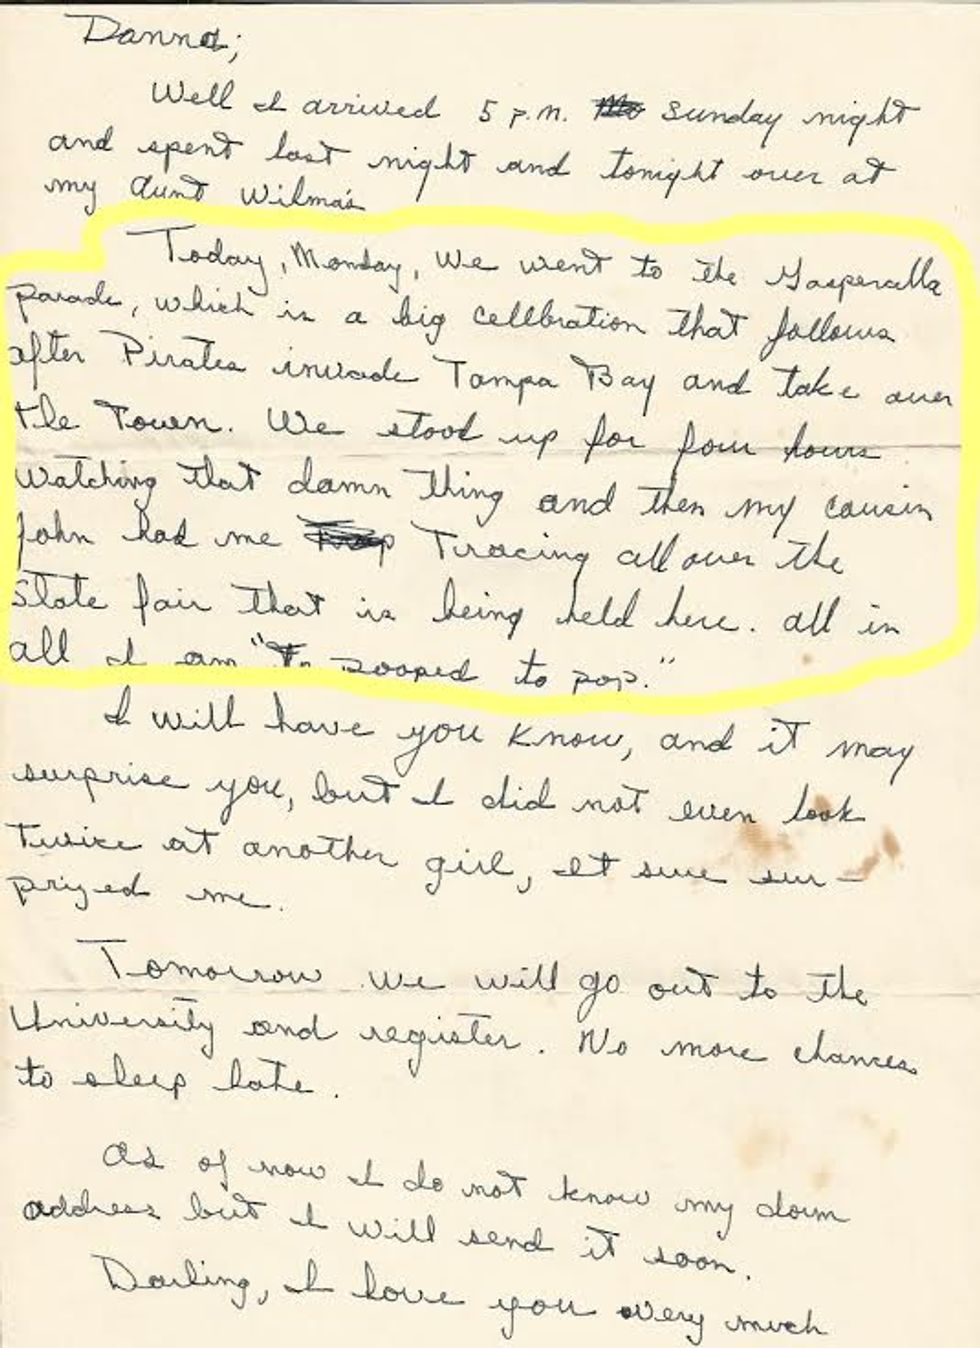 Danna;
Well I arrived 5 p.m. Sunday night
and spent last night and tonight over at
my Aunt Wilma's
Today, Monday, we went to the Gasperalla
parade, which is a big cellbration that follows
after Pirates invade Tampa Bay and take over
the Town. We stood up for four hours
watching that damn thing and then my cousin
John had me Tracing all over the
State fair that is being held here. All in
all I am "To pooped to pop."
I will have you know, and it may
surprise you, but I did not even look
twice at another girl, It sure sur-
prized me.
Tomorrow we will go out to the
University and register. No more chances
to sleep late.
As of now I do not know my dorm
address but I will send it soon.
Darling, I love you very much